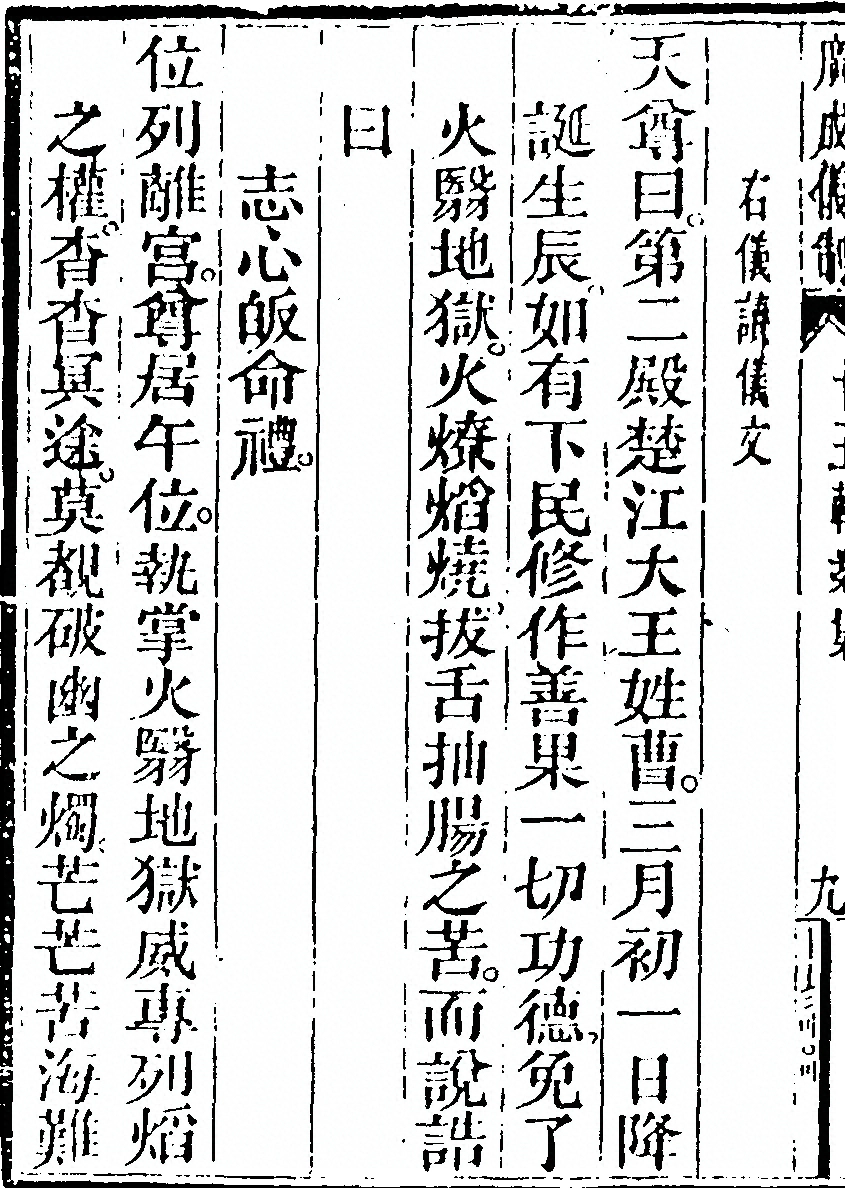 廣成儀制
九
右儀讀儀文
天尊曰。第二殿楚江大王姓曹。三月初一日降
誕生辰。如有下民修作善果一切功德。免了
火翳地獄。火燎熖燒。拔舌抽腸之苦。而說誥
曰
志心皈命禮。
位列離宮。尊居午位。執掌火翳地獄威專列熖
之權。杳杳冥途。莫覩破幽之燭。芒芒苦海難